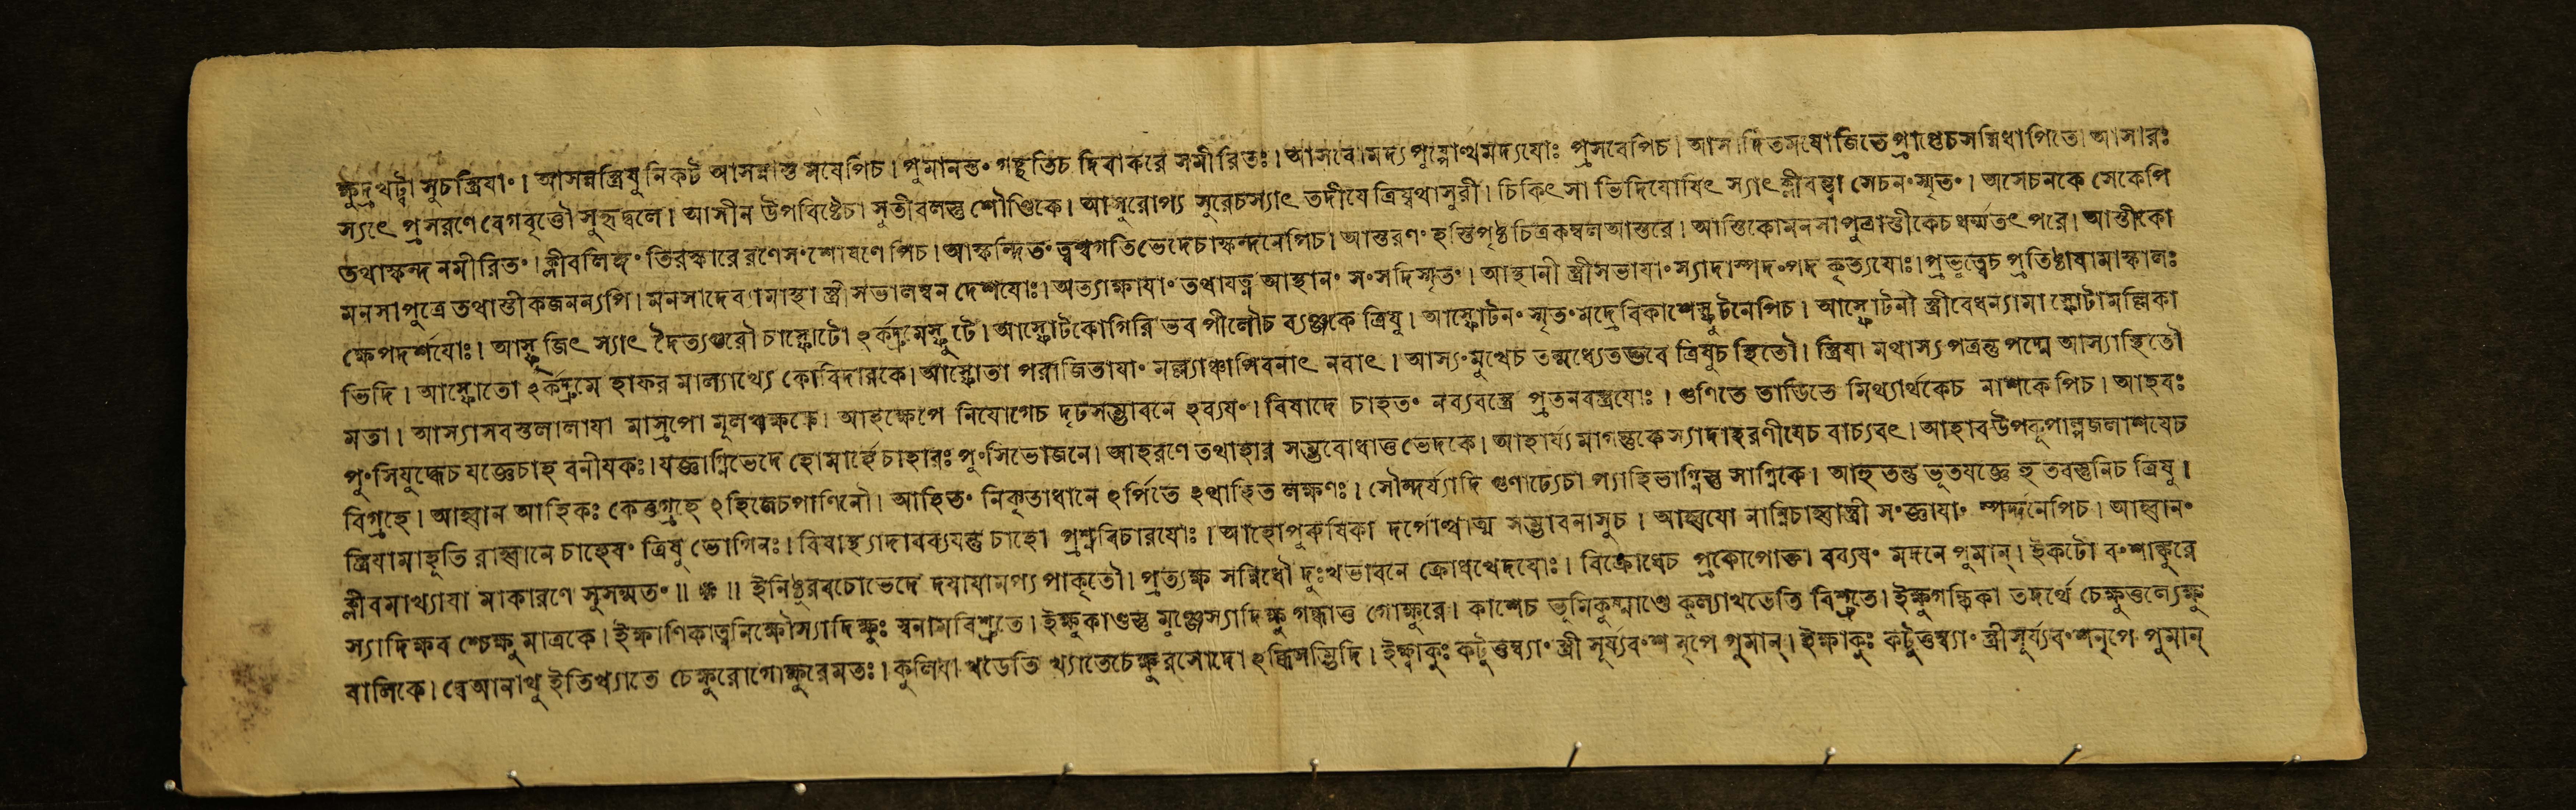 ক্ষুদ্রখট্বা সুচস্ত্রিযাং। আসন্নস্ত্রিষুনিকট আসন্নাস্ত মযেপিচ। পুমানস্তং গছতিচ দিবাকরে সমীরিতঃ। আসবো মদ্য পুষ্পোত্থমদ্যযোঃ প্রসবেপিচ। আসাদিতমযোজিতে প্রাপ্তেচসন্নিধাপিতে। আসারঃ
স্যাৎ প্রসরণে বেগবৃত্তৌ সুহৃদ্বলে। আসীন উপবিষ্টেচ। সুতীবলস্তু শৌণ্ডিকে। আসুরোপ্য সুরেচস্যাৎ তদীযে ত্রিষ্বথাসুরী। চিকিৎসা ভিদিযোষিৎ স্যাৎক্লীবন্ত্বা সেচনংস্মৃতং। অসেচনকে সেকেপি
তথাস্কন্দ নমীরিতং। ক্লীবলিঙ্গং তিরস্কারে রণেসংশোষণে পিচ। আস্কন্দিতং ত্বশ্বগতিভেদেচাস্কন্দনেপিচ। আস্তরণং হস্তিপৃষ্ঠ চিত্রকম্বলআস্তরে। আস্তিকোমনসাপুত্রাস্তীকেচ ধর্ম্মতৎ পরে। আস্তীকো
মনসাপুত্রে তথাস্তীকজনন্যপি। মনসাদেব্যামাস্থা স্ত্রীসভালম্বন দেশযোঃ। অত্যাক্ষাযাং তথাযত্ন আস্থানং সংসদিস্মৃতং। আস্থানী স্ত্রীসভাযাং স্যাদাস্পদংপদ কৃত্যযোঃ। প্রভুত্বেচ প্রতিষ্ঠাযামাস্ফালঃ
ক্ষেপদর্শযোঃ। আস্ফুজিৎ স্যাৎ দৈত্যগুরৌ চাস্ফোটো ঽর্কদ্রুমস্ফুটে। আস্ফোটকোগিরি ভব পীলৌচ ব্যঞ্জকে ত্রিষু। আস্ফোটনং স্মৃতংমদ্রেবিকাশেস্ফুটনেপিচ। আস্ফোটনী স্ত্রীবেধন্যামা স্ফোটামল্লিকা
ভিদি। আস্ফোতো ঽর্কদ্রুমে হাফর মাল্যাথ্যে কোবিদারকে। আস্ফোতা পরাজিতাযাং মল্ল্যাঞ্চাপিবনাৎ নবাৎ। আস্যংমুখেচ তন্মধ্যেতদ্ভবে ত্রিষুচ স্থিতৌ। স্ত্রিযা মথাস্য পত্রন্তু পদ্মে আস্যাস্থিতৌ
মতা। আস্যাসবস্তুলালাযা মাস্রপো মূলঋক্ষকে। আহক্ষেপে নিযোগেচ দৃঢসম্ভাবনে ঽব্যযং। বিষাদে চাহতং নব্যবস্ত্রে প্রতনবস্ত্রযোঃ। গুণিতে তাডিতে মিথ্যার্থকেচ নাশকেপিচ। আহবঃ
পুংসিযুদ্ধেচ যজ্ঞেচাহ বনীযকঃ। যজ্ঞাগ্নিভেদে হোমার্হে চাহারঃ পুংসিভোজনে। আহরণে তথাহার সম্ভবোধাত্ত ভেদকে। আহার্য্যমাগন্তুকেস্যাদাহরণীযেচ বাচ্যবৎ। আহাবউপকূপাল্পজলাশযেচ
বিগ্রহে। আহ্বান আহিকঃ কেত্তগ্রহে ঽহিজেচপাণিনৌ। আহিতং নিকৃতাধানে ঽর্পিতে ঽথাহিত লক্ষণঃ। সৌন্দর্য্যাদি গুণাঢ্যেচা প্যাহিতাগ্নিস্তু সাগ্নিকে। আহুতন্তু ভূতযজ্ঞে হুতবস্তুনিচ ত্রিষু।
স্ত্রিযামাহূতি রাহ্বানে চাহেযং ত্রিষু ভোগিনঃ। বিষাস্থ্যাদাবব্যযন্তু চাহো প্রশ্নবিচারযোঃ। আহোপুরুষিকা দর্পোত্থাত্ম সম্ভাবনাসুচ। আহ্বযো নাম্নিচাহ্বাস্ত্রী সংজ্ঞাযাং স্পর্দ্দনেপিচ। আহ্বানং
ক্লীবমাখ্যাযা মাকারণে সুসম্মতং॥ ॥ ইনিষ্ঠুরবচোভেদে দযাযামপ্য পাকৃতৌ। প্রত্যক্ষ সন্নিধৌ দুঃখভাবনে ক্রোধখেদযোঃ। বিক্রোধেচ প্রকোপোক্তা বব্যযং মদনে পুমান্। ইকটো বংশাঙ্কুরে
স্যাদিক্ষব শ্চেক্ষু মাত্রকে। ইক্ষাণিকাত্বনিক্ষৌস্যাদিক্ষুঃ স্বনামবিশ্রুতে। ইক্ষুকাণ্ডস্তু মুঞ্জেস্যাদিক্ষু গন্ধাত্ত গোক্ষুরে। কাশেচ ভূমিকুষ্মাণ্ডে কুল্যাখডেতি বিশ্রুতে। ইক্ষুগন্ধিকা তদর্থে চেক্ষুত্তল্যেক্ষু
বালিকে। বেআনাথু ইতিখ্যাতে চেক্ষুরোগোক্ষুরেমতঃ। কুলিযা খডেতি খ্যাতেচেক্ষুরসোদো ঽব্ধিসম্ভিদি। ইক্ষ্বাকুঃ কটুত্তম্ব্যাং স্ত্রী সূর্য্যবংশ নৃপে পুমান্। ইক্ষাকুঃ কটুত্তম্ব্যাং স্ত্রীসূর্য্যবংশনৃপে পুমান্